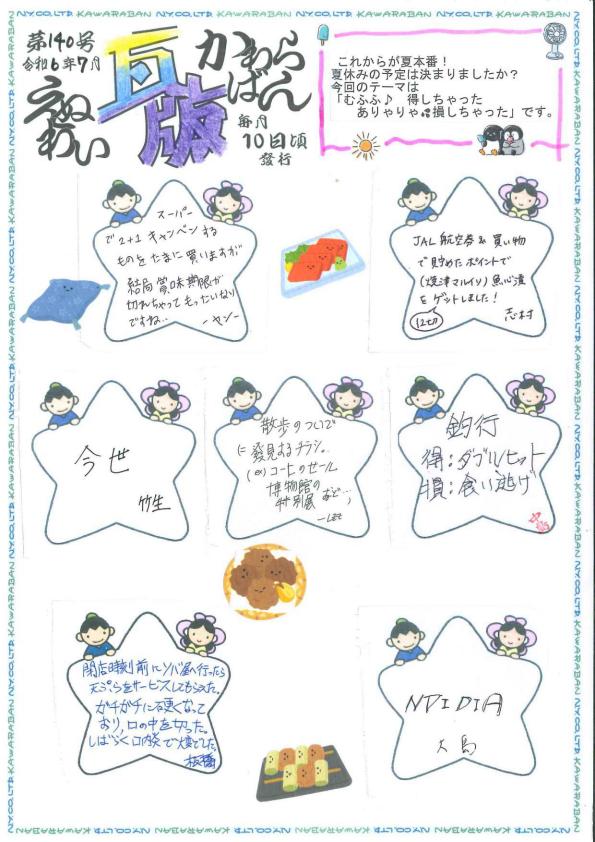 第140号
令和6年7月
えぬ
わい
瓦版
かわら
ばん
毎月
10日頃
発行
これからが夏本番!
夏休みの予定は決まりましたか?
今回のテーマは
「むふふ♪ 得しちゃった
ありゃりゃ 損しちゃった」です。
スーパー
で2+1キャンペンする
ものをたまに買いますが
結局賞味期限が
切れちゃってもったいない
ですね..
-ヤン-
JAL航空券&買い物
で貯めたポイントで
(焼津マルイリ)魚心漬
をゲットしました!
12切
志村
今世
竹生
散歩のついで
に発見するチラシ。
(ex)コートのセール
博物館の
特別展 など…;
-LEE
釣行
得:ダブルヒット
損:食い逃げ
閉店時刻前にソバ屋へ行ったら
天ぷらをサービスしてもらえた。
ガチガチに硬くなって
おり、口の中を切った。
しばらく口内炎で大変でした。
板橋
NVIDIA
大島
NY.CO.,LTD KAWARABAN